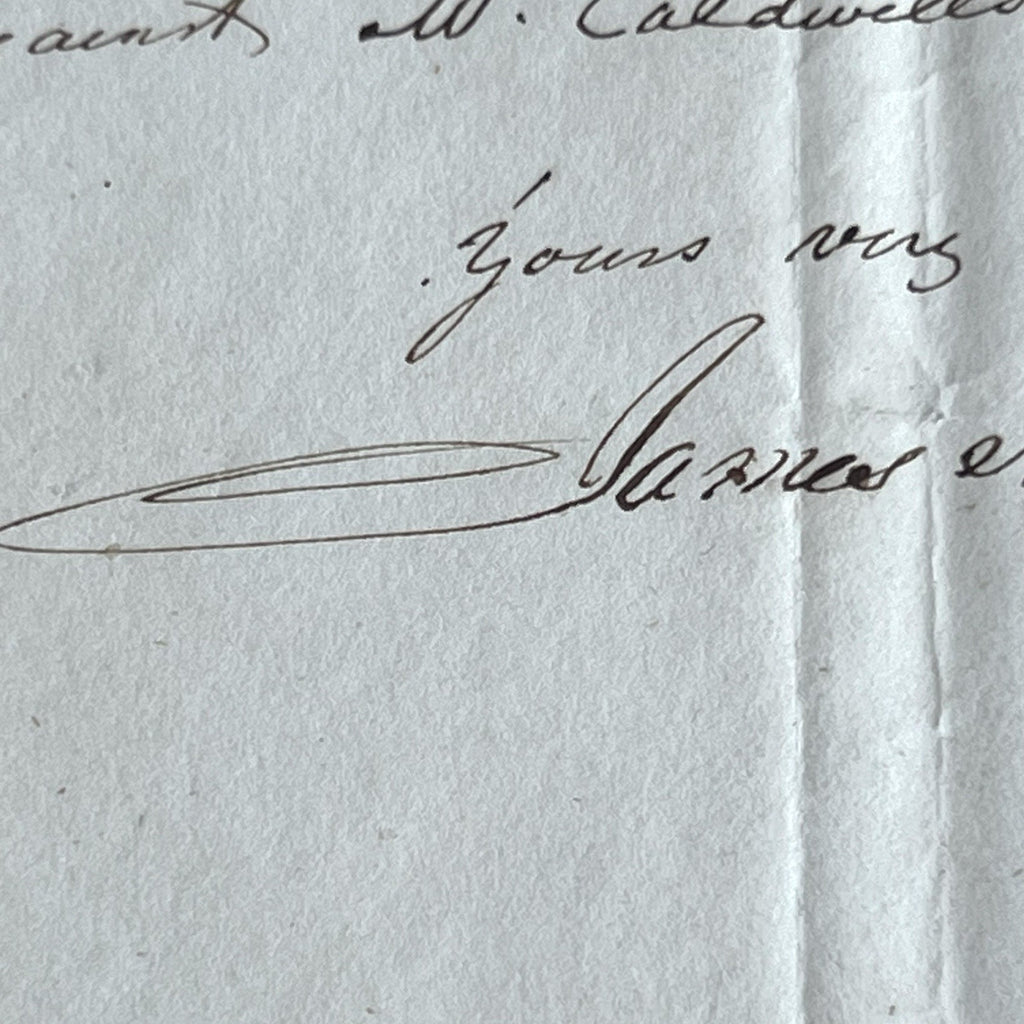 against Mr. Caldwells
Yours very
James